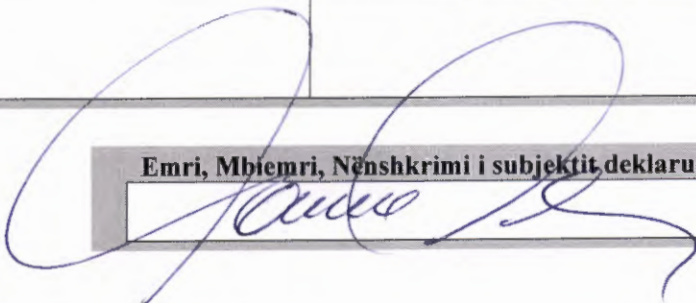 Emri, Mbiemri, Nënshkrimi i subjektit deklaru